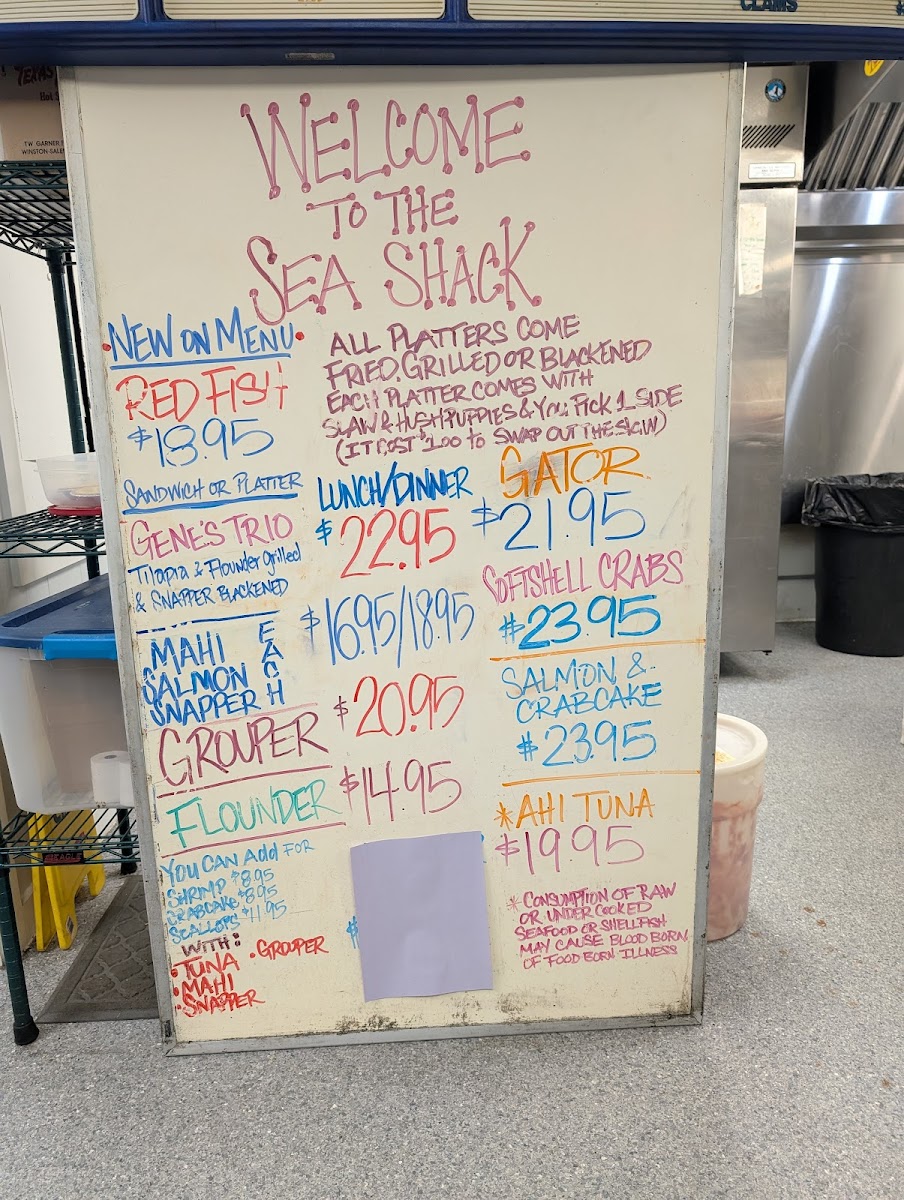 CLAMS
TEXAS
T.W. GARNER
WINSTON-SALEM
WELCOME
TO THE
SEA SHACK
• NEW ON MENU •
RED FISH
$18.95
SANDWICH OR PLATTER
ALL PLATTERS COME
FRIED, GRILLED OR BLACKENED
EACH PLATTER COMES WITH
SLAW & HUSHPUPPIES & YOU PICK 1 SIDE
(IT COST $1.00 TO SWAP OUT THE SLAW)
LUNCH/DINNER
GENE'S TRIO $22.95
Tilapia & Flounder Grilled
& SNAPPER BLACKENED
MAHI
SALMON
SNAPPER
EACH
$16.95/18.95
GROUPER $20.95
FLOUNDER $14.95
YOU CAN ADD FOR
SHRIMP $8.95
CRABCAKE $8.95
SCALLOPS $11.95
WITH:
• TUNA • GROUPER
• MAHI
• SNAPPER
GATOR
$21.95
SOFTSHELL CRABS
$23.95
SALMON &
CRABCAKE
$23.95
*AHI TUNA
$19.95
* CONSUMPTION OF RAW
OR UNDER COOKED
SEAFOOD OR SHELLFISH
MAY CAUSE BLOOD BORN
OF FOOD BORN ILLNESS
EAGLE